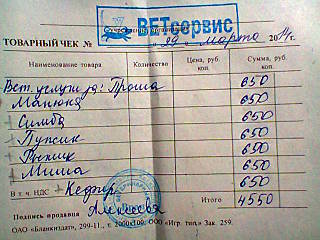 ВЕТсервис
ТОВАРНЫЙ ЧЕК № " 29 " марта 2014г.
Наименование товара Количество Цена, руб. коп. Сумма, руб. коп.
Вет. услуги за: Проша 650
Манюня 650
+ Симба 650
+ Пупсик 650
+ Рыжик 650
+ Миша 650
В т. ч. НДС + Кефир 650
Итого 4550
Подпись продавца
ОАО «Бланкиздат», 299-11, т. 2000х100. ООО «Игр. тип.» Зак. 259.